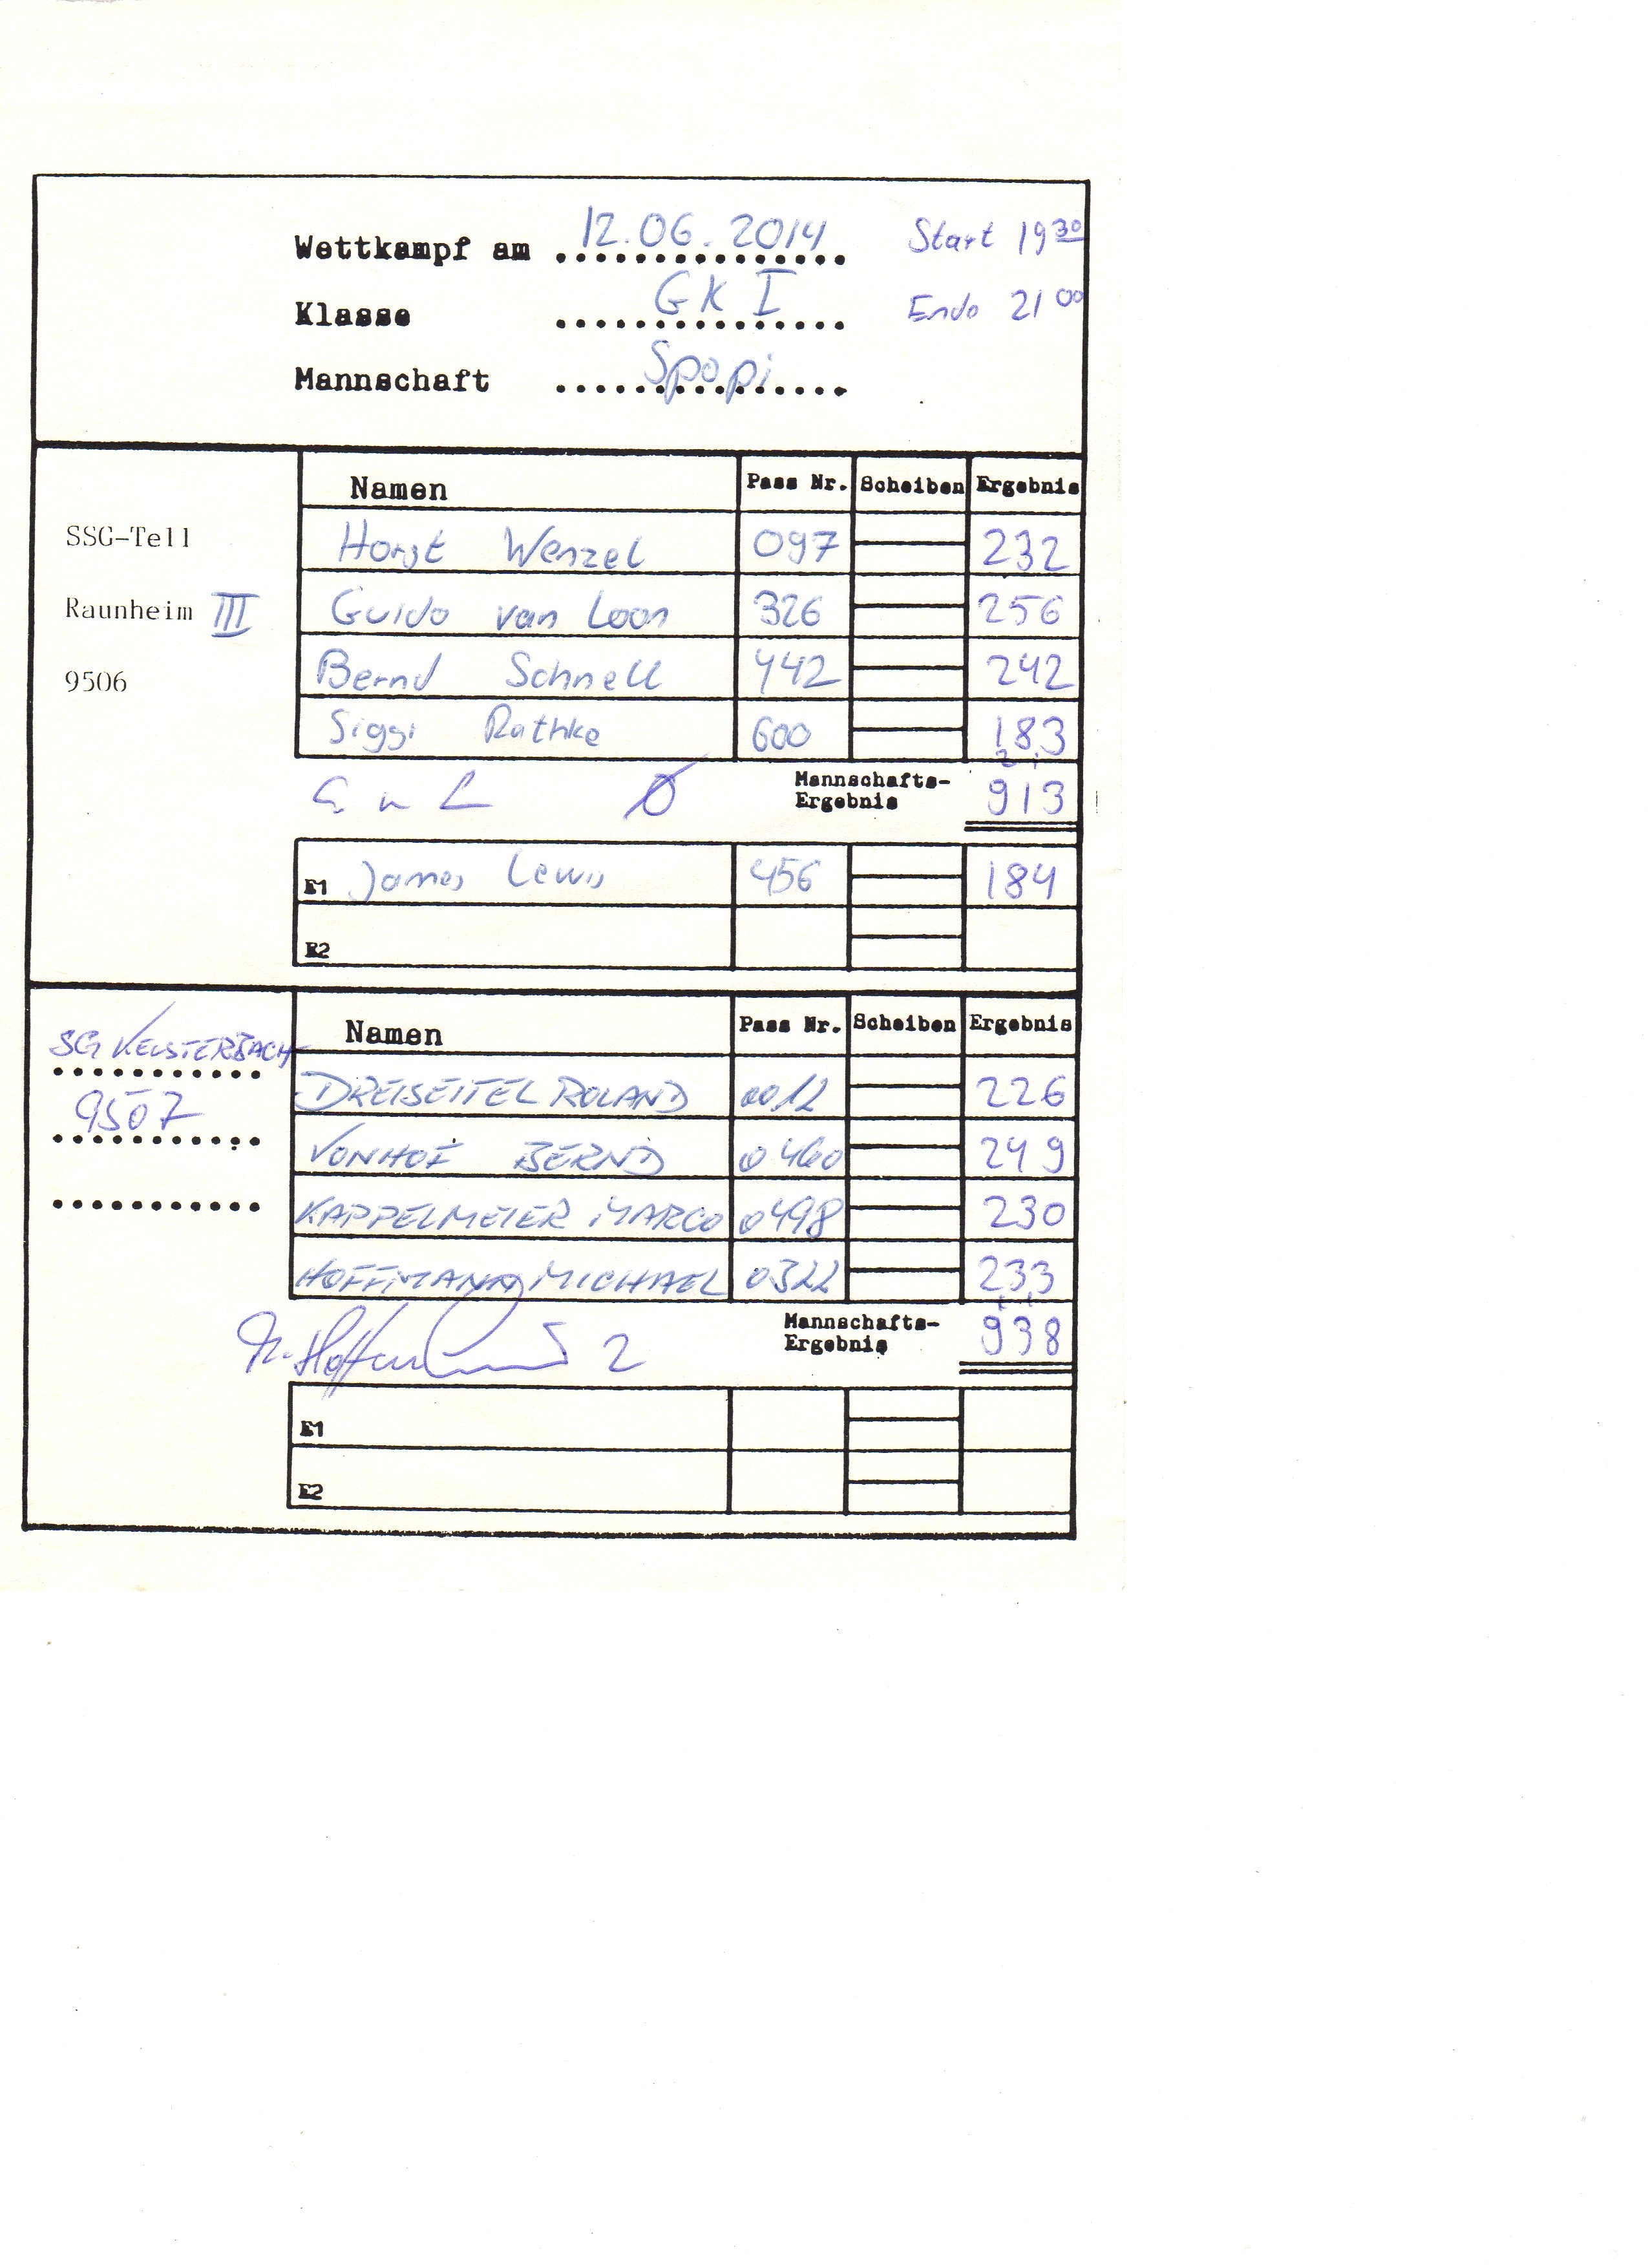 Wettkampf am 12.06.2014 Start 19 30
Klasse GK I Ende 21 00
Mannschaft Spopi
Namen Pass Nr. Scheiben Ergebnis
SSG-Tell Horst Wenzel 097 232
Raunheim III Guido van Loon 326 256
9506 Bernd Schnell 442 242
Siggi Rathke 600 183
G v L 0 Mannschafts-
Ergebnis 913
E1 James Lewis 456 184
E2
Namen Pass Nr. Scheiben Ergebnis
SG KELSTERBACH
DREISEITEL ROLAND 0012 226
9507
VONHOF BERND 0460 249
KAPPELMEIER MARCO 0498 230
HOFFMANN MICHAEL 0322 233
M. Hoffmann 2 Mannschafts-
Ergebnis 938
E1
E2